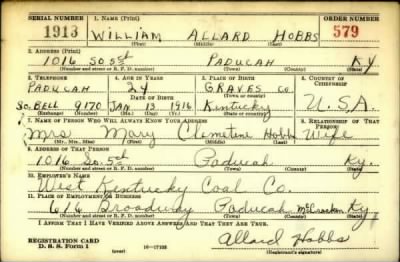 SERIAL NUMBER 1. NAME (Print) ORDER NUMBER
1913 WILLIAM ALLARD HOBBS 579
(First) (Middle) (Last)
2. ADDRESS (Print)
1016 So 5st PADUCAH KY
(Number and street or R. F. D. number) (Town) (County) (State)
3. TELEPHONE 4. AGE IN YEARS 5. PLACE OF BIRTH 6. COUNTRY OF CITIZENSHIP
PADUCAH 24 GRAVES Co.
DATE OF BIRTH (Town or county)
So. BELL 9170 JAN 13 1916 Kentucky U.S.A.
(Exchange) (Number) (Mo.) (Day) (Yr.) (State or country)
7. NAME OF PERSON WHO WILL ALWAYS KNOW YOUR ADDRESS 8. RELATIONSHIP OF THAT PERSON
Mrs. Mary Clemetine Hobbs Wife
(Mr., Mrs., Miss) (First) (Middle) (Last)
9. ADDRESS OF THAT PERSON
1016 So. 5st Paducah Ky.
(Number and street or R. F. D. number) (Town) (County) (State)
10. EMPLOYER'S NAME
West Kentucky Coal Co.
11. PLACE OF EMPLOYMENT OR BUSINESS
616 Broadway Paducah McCracken Ky
(Number and street or R. F. D. number) (Town) (County) (State)
I AFFIRM THAT I HAVE VERIFIED ABOVE ANSWERS AND THAT THEY ARE TRUE.
REGISTRATION CARD
D. S. S. Form 1 (over) 16-17105 Allard Hobbs